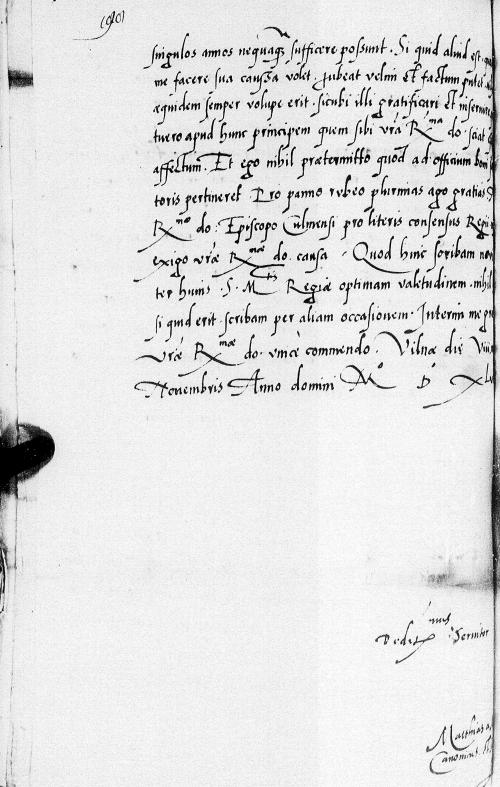 singulos annos nequaq̃ sufficere possunt. Si quid aliud est
me facere sua caussa volet. Jubeat velim et factum putet
æquidem semper volupe erit. sicubi illi gratificari et inservire
tuero apud hunc principem quem sibi vrã Rma do. sciat
affectum. Et ego nihil prætermitto quod ad officium boni
toris pertineret. Pro panno rubeo plurimas ago gratias
Rmo do. Episcopo Culmensi pro literis consensus Regii
exigo vræ Rmæ do. causa. Quod hinc scribam non
ter huius S. Mtis Regiæ optimam valetudinem. nihil
si quid erit. scribam per aliam occasionem. Interim me
vræ Rmæ do. unice commendo. Vilnæ die
Novembris Anno domini Mo Do XL
Deditmus Servitor
Matthias
Canonicus